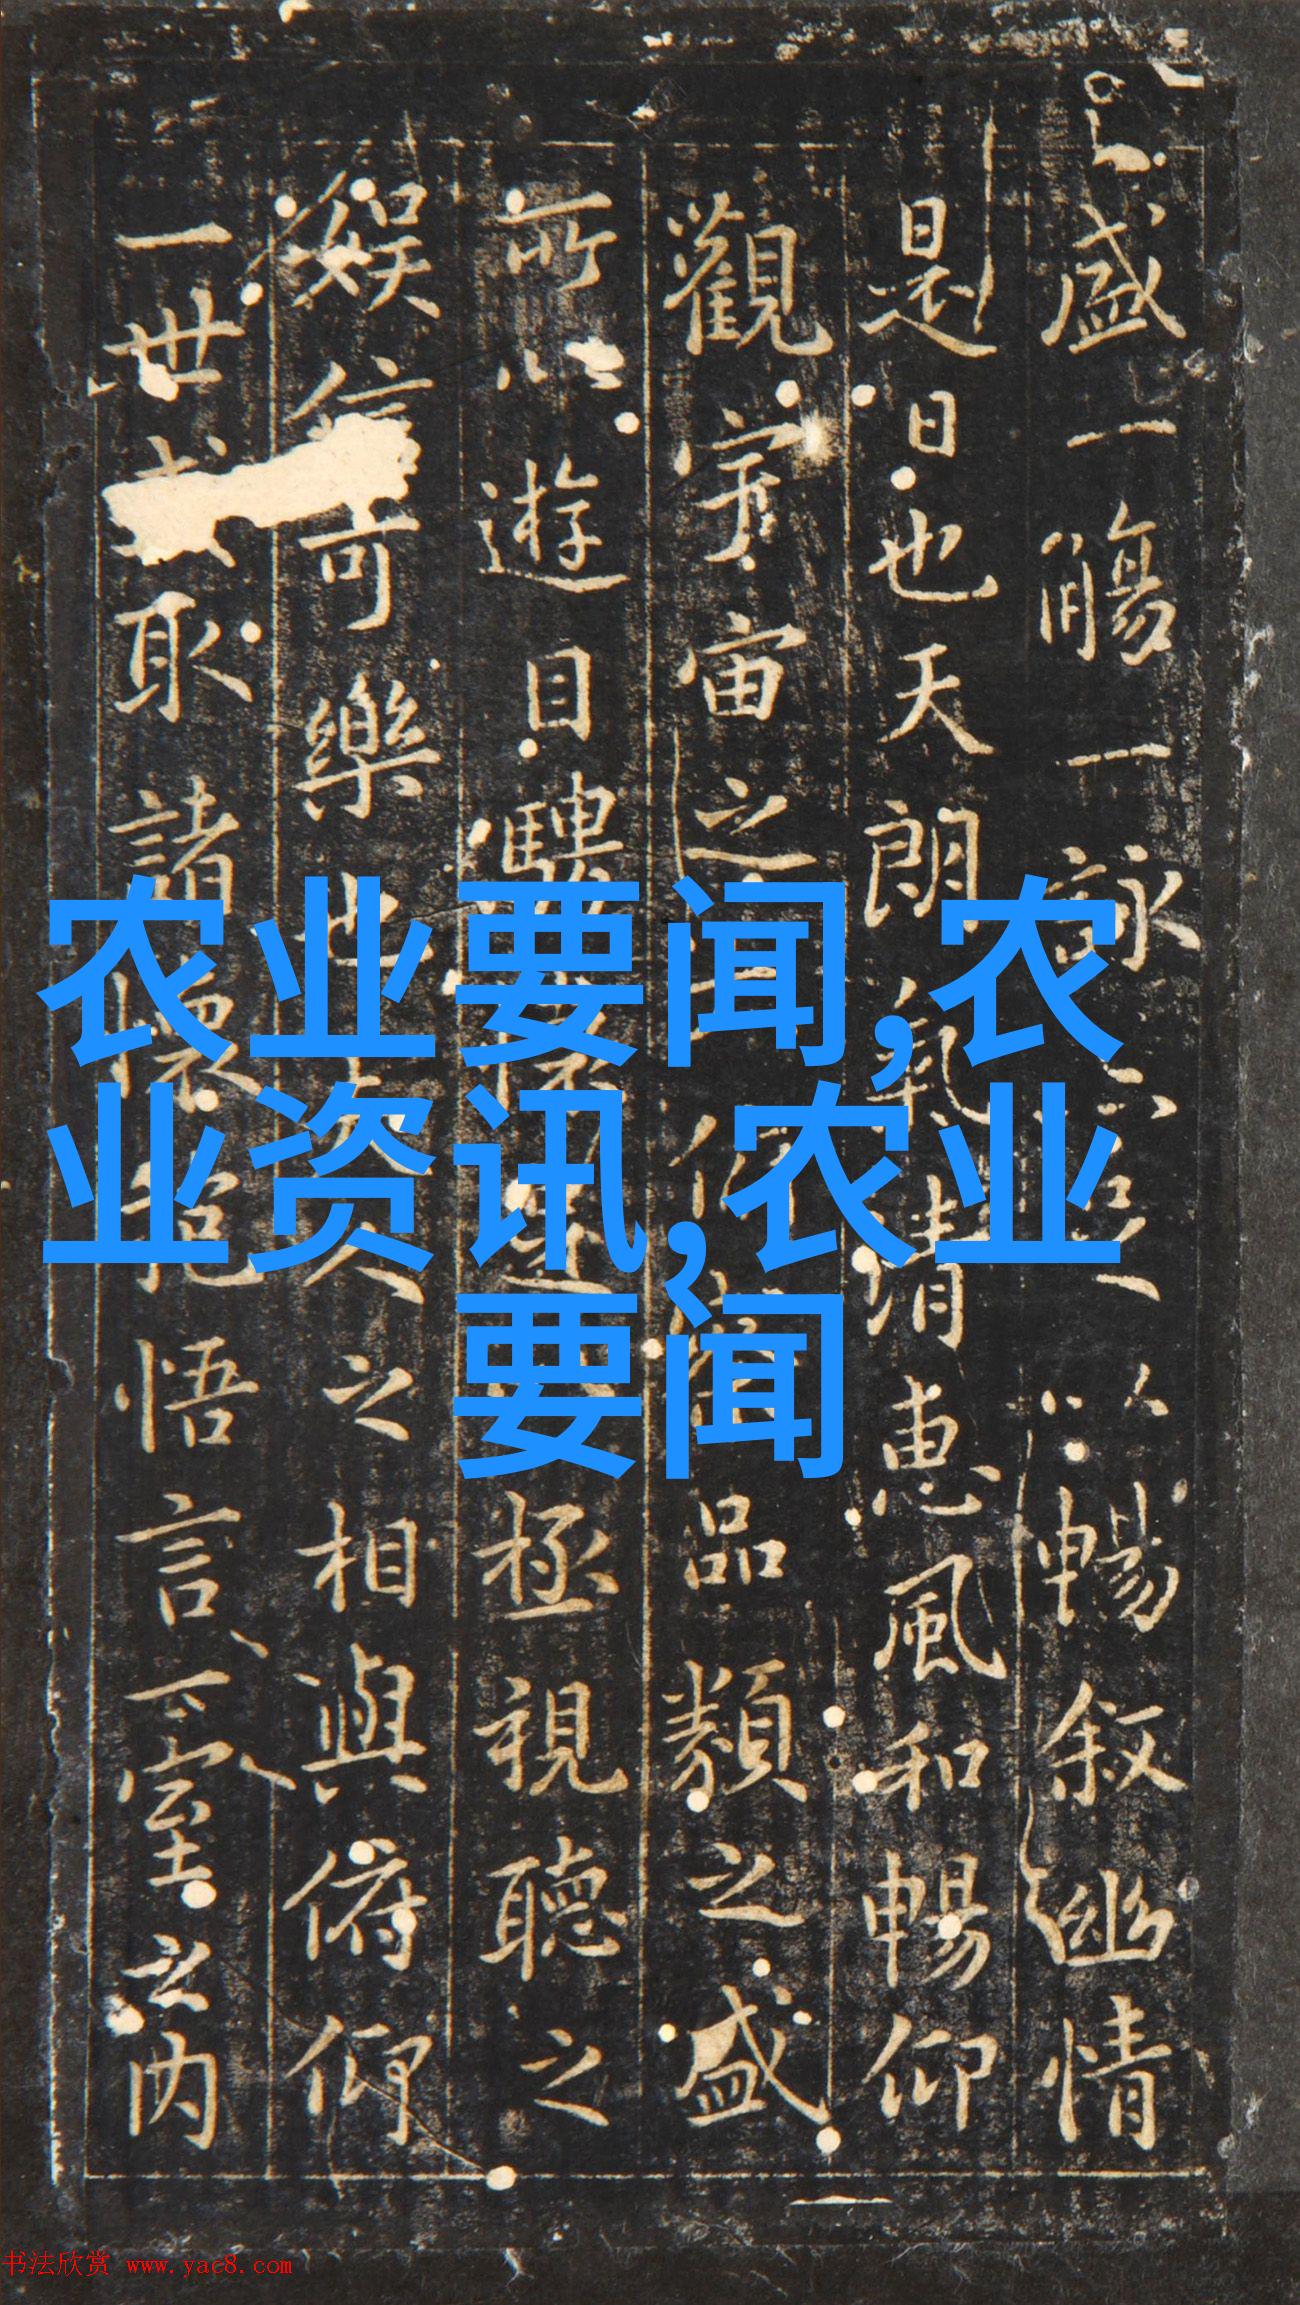 盛一觴一詠亦足以暢叙幽情
是日也天朗氣清惠風和暢仰
觀宇宙之大俯品類之盛
所以遊目騁懷足極視聽之
娱信可樂也夫人之相與俯仰
一世或取諸懷抱悟言一室之内
农业要闻,农
业资讯,农业
要闻
书法欣赏 www.yac8.com